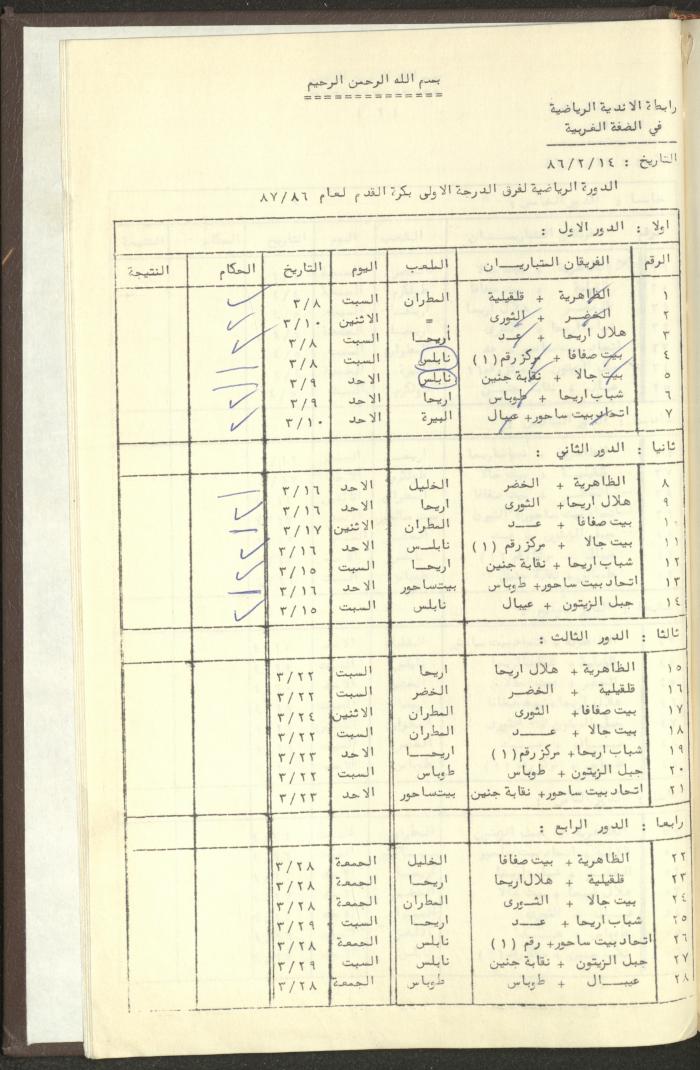 بسم الله الرحمن الرحيم
رابطة الاندية الرياضية
في الضفة الغربية
التاريخ : ٨٦/٢/١٤
الدورة الرياضية لفرق الدرجة الاولى بكرة القدم لعام ٨٧/٨٦
اولا : الدور الاول :
الرقم الفريقان المتباريان الملعب اليوم التاريخ الحكام النتيجة
١ الظاهرية + قلقيلية المطران السبت ٣/٨
٢ الخضر + الثورى = الاثنين ٣/١٠
٣ هلال اريحا + عـد أريحـا السبت ٣/٨
٤ بيت صفافا + مركز رقم (١) نابلس السبت ٣/٨
٥ بيت جالا + نقابة جنين نابلس الاحد ٣/٩
٦ شباب اريحا + طوباس اريحا الاحد ٣/٩
٧ اتحاد بيت ساحور + عيبال البيرة الاحد ٣/١٠
ثانيا : الدور الثاني :
٨ الظاهرية + الخضر الخليل الاحد ٣/١٦
٩ هلال اريحا + الثورى اريحا الاحد ٣/١٦
١٠ بيت صفافا + عــد المطران الاثنين ٣/١٧
١١ بيت جالا + مركز رقم (١) نابلـس الاحد ٣/١٦
١٢ شباب اريحا + نقابة جنين اريحـا السبت ٣/١٥
١٣ اتحاد بيت ساحور + طوباس بيت ساحور الاحد ٣/١٦
١٤ جبل الزيتون + عيبال نابلس السبت ٣/١٥
ثالثا : الدور الثالث :
١٥ الظاهرية + هلال اريحا اريحا السبت ٣/٢٢
١٦ قلقيلية + الخضر الخضر السبت ٣/٢٢
١٧ بيت صفافا + الثورى المطران الاثنين ٣/٢٤
١٨ بيت جالا + عــــد المطران السبت ٣/٢٢
١٩ شباب اريحا + مركز رقم (١) اريحــا الاحد ٣/٢٣
٢٠ جبل الزيتون + طوباس طوباس السبت ٣/٢٢
٢١ اتحاد بيت ساحور + نقابة جنين بيت ساحور الاحد ٣/٢٣
رابعا : الدور الرابع :
٢٢ الظاهرية + بيت صفافا الخليل الجمعة ٣/٢٨
٢٣ قلقيلية + هلال اريحا اريحـا الجمعة ٣/٢٨
٢٤ بيت جالا + الثـورى المطران الجمعة ٣/٢٨
٢٥ شباب اريحا + عـــد اريحـا السبت ٣/٢٩
٢٦ اتحاد بيت ساحور + رقم (١) نابلس الجمعة ٣/٢٨
٢٧ جبل الزيتون + نقابة جنين نابلس السبت ٣/٢٩
٢٨ عيبــال + طوباس طوباس الجمعة ٣/٢٨